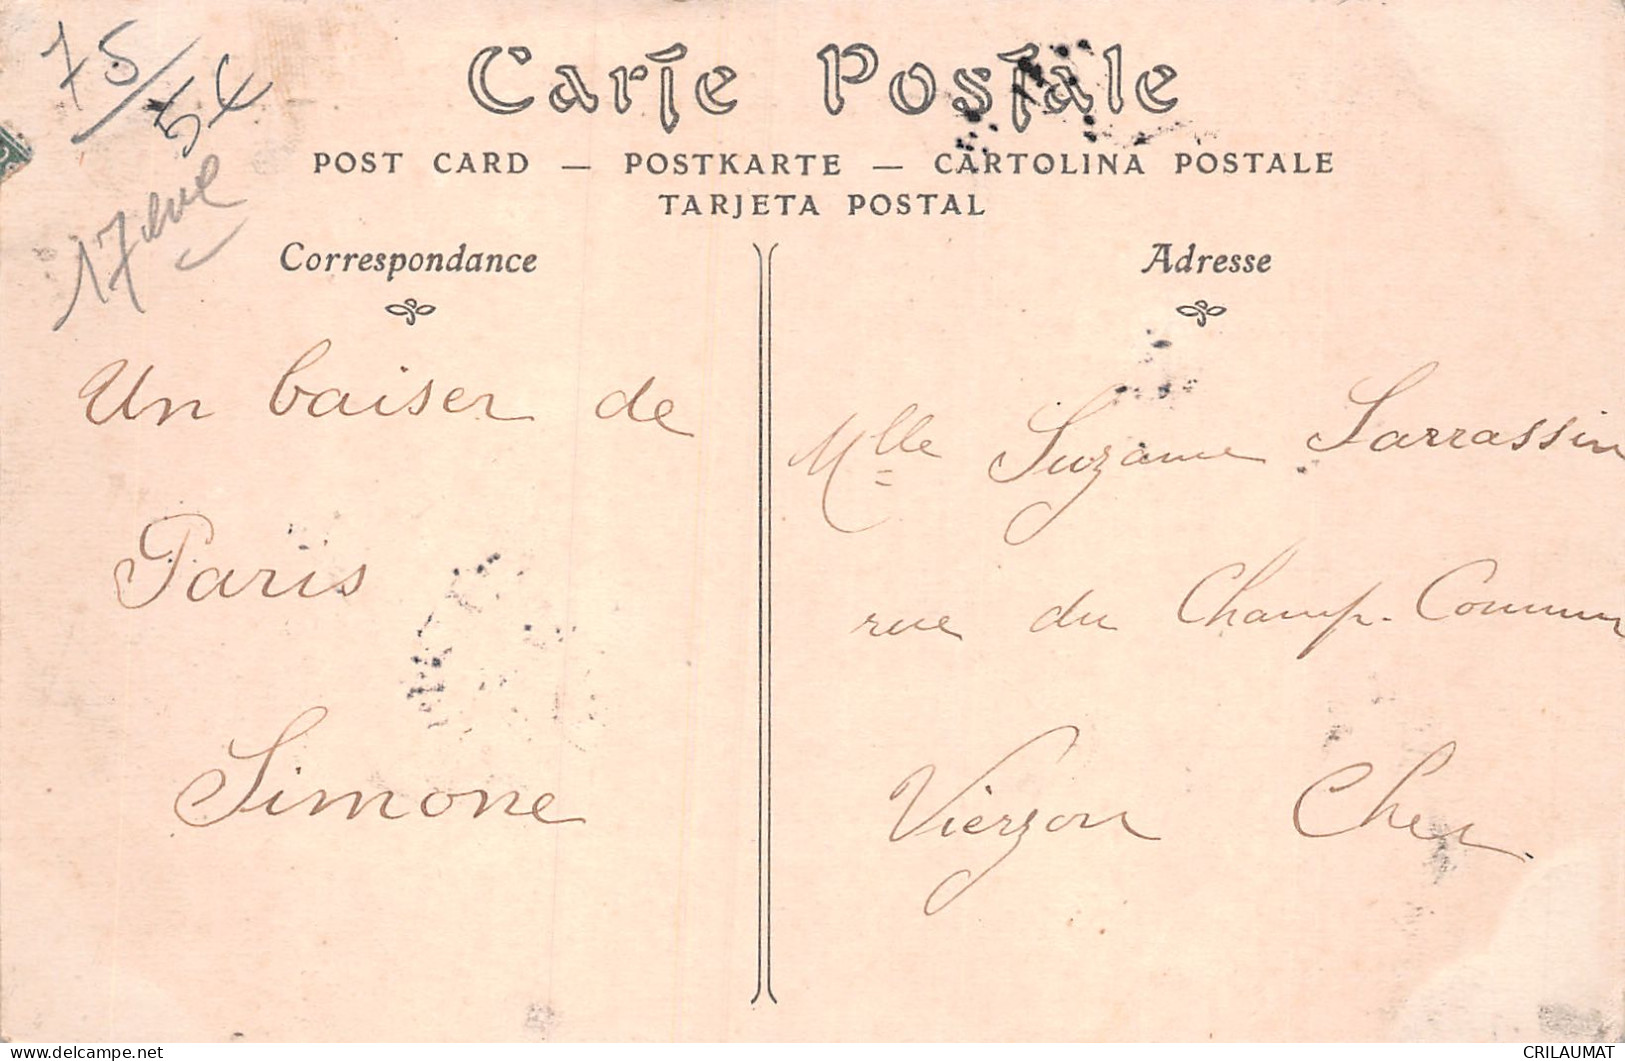 75
54
17 eme
Carte Postale
POST CARD — POSTKARTE — CARTOLINA POSTALE
TARJETA POSTAL
Correspondance
Adresse
Un baiser de
Paris
Simone
Mlle Suzanne Sarrassin
rue du Champ-Commun
Vierzon Cher
CRILAUMAT